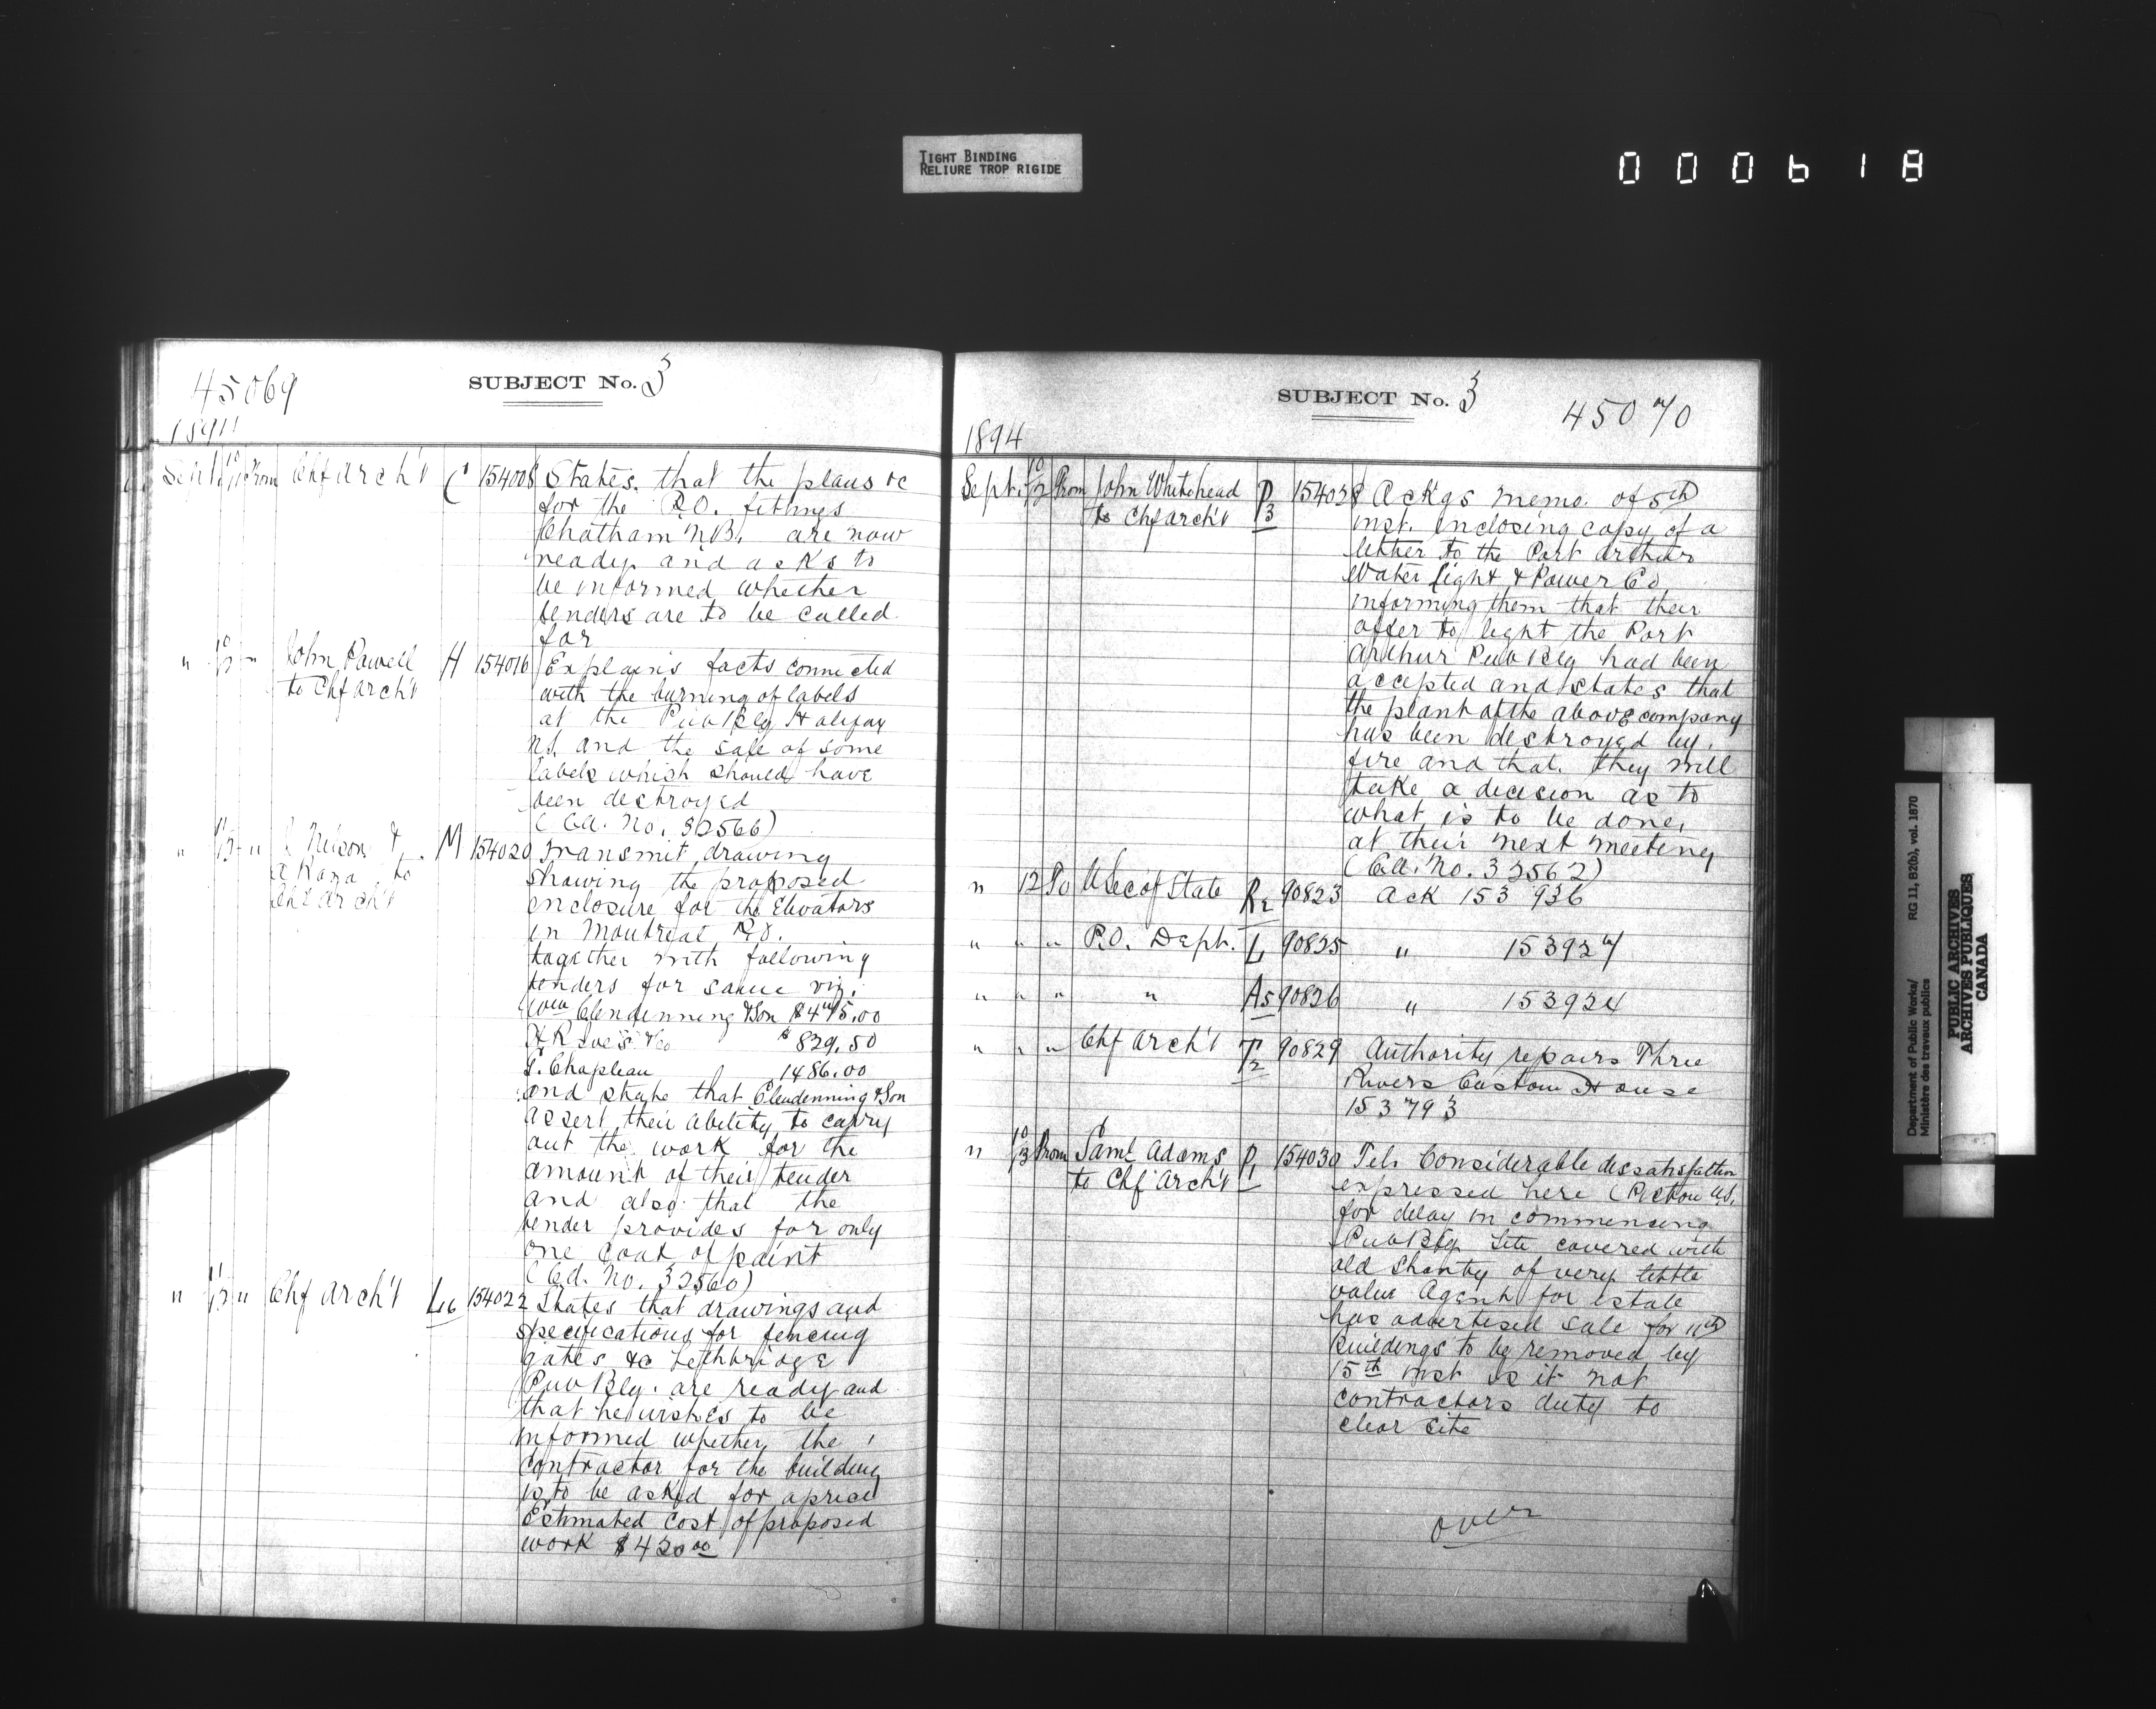 TIGHT BINDING
RELIURE TROP RIGIDE
000618
45069
SUBJECT No. 3
Sept. From Chf arch't C 154008 States that the plans &c
for the P.O. fittings
Chatham N.B. are now
ready and asks to
be informed whether
tenders are to be called
for
" " John Powell H 154016 Explains facts connected
to Chf arch't with the burning of labels
at the Pub Blg Halifax
N.S. and the sale of some
labels which should have
been destroyed
(Cd. No. 32566)
" " Nelson & M 154020 Transmit drawing
to showing the proposed
arch't enclosure for the Elevators
in Montreal P.O.
together with following
tenders for same viz.
Wm Clendenning & Son $475.00
H R Ives & Co $829.50
1486.00
and state that Clendenning & Son
assert their ability to carry
out the work for the
amount of their tender
and also that the
tender provides for only
one coat of paint
(Cd. No. 32560)
" 11/12 " Chf arch't L16 154022 States that drawings and
specifications for fencing
gates &c Lethbridge
Pub Blg. are ready and
that he wishes to be
informed whether the
contractor for the building
is to be asked for a price
Estimated cost of proposed
work $420 00
SUBJECT No. 3
45070
1894
Sept. 10/12 From John Whitehead P3 154028 Ackgs memo. of 5th
to Chf arch't inst. enclosing copy of a
letter to the Port Arthur
Water Light & Power Co
informing them that their
offer to light the Port
Arthur Pub Blg had been
accepted and states that
the plant of the above company
has been destroyed by
fire and that they will
take a decision as to
what is to be done,
at their next meeting
(Cd. No. 32562)
" 12 To U Sec of State R2 90823 Ack 153936
" " " P.O. Dept. L1 90825 " 153927
" " " " A5 90826 " 153924
" " " Chf Arch't T2 90829 Authority repairs Three
Rivers Custom House
153793
" 10/13 From Saml Adams P1 154030 Tel. Considerable dissatisfaction
to Chf Arch't expressed here (Pictou N.S.
for delay in commencing
Pub Blg Site covered with
old Shanty of very little
value Agent for estate
has advertised sale for 11th
Buildings to be removed by
15th inst is it not
contractors duty to
clear site
over
Department of Public Works/ RG 11, B2(b), vol. 1870
Ministère des travaux publics
PUBLIC ARCHIVES
ARCHIVES PUBLIQUES
CANADA